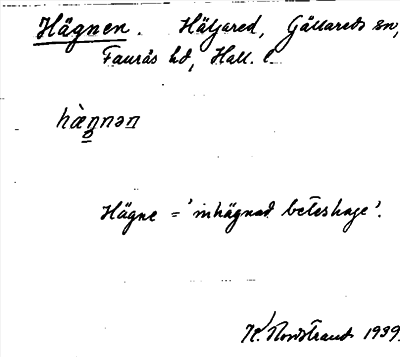 Hägnen. Häljared, Gällareds sn,
Faurås hd, Hall. l.
hæ̀n̥nən
Hägne = 'inhägnad beteshage'.
K. Nordstrand 1939.